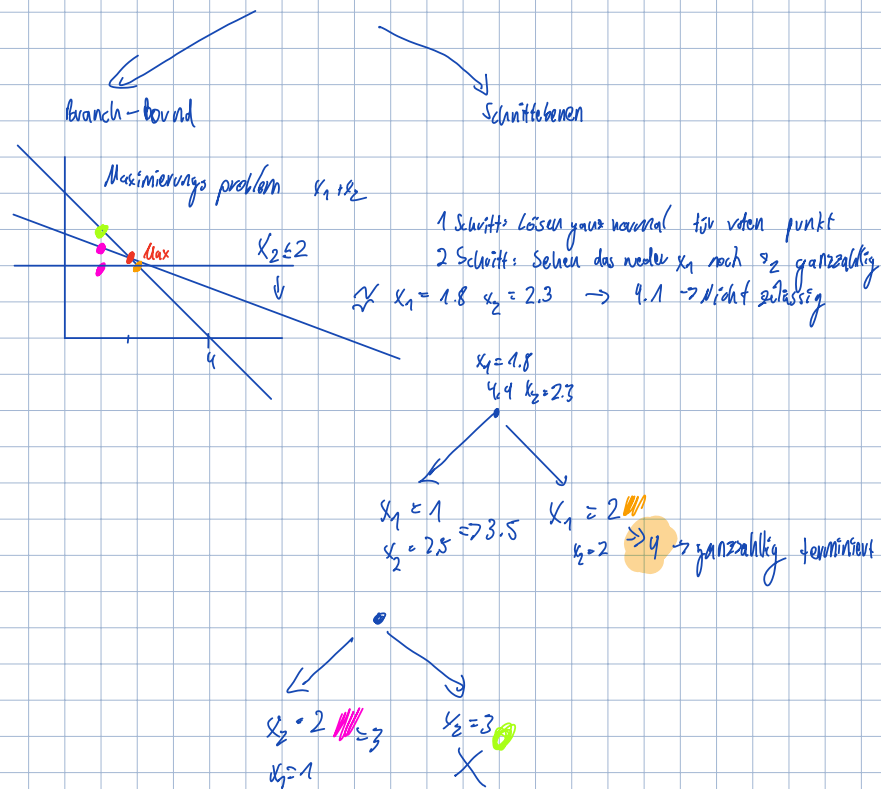 Branch-bound
Schnittebenen
Maximierungs problem x₁+x₂
Max
X₂≤2
4
1 Schritt: Lösen ganz normal für roten punkt
2 Schritt: Sehen das weder x₁ noch x₂ ganzzahlig
x₁ = 1.8 x₂ = 2.3 → 4.1 → Nicht zulässig
x₁ = 1.8
4.1 x₂ = 2.3
x₁ = 1
x₂ = 2.5 => 3.5
x₁ = 2
x₂ = 2 => 4 → ganzzahlig terminiert
x₂ = 2 = 3
x₁ = 1
x₂ = 3